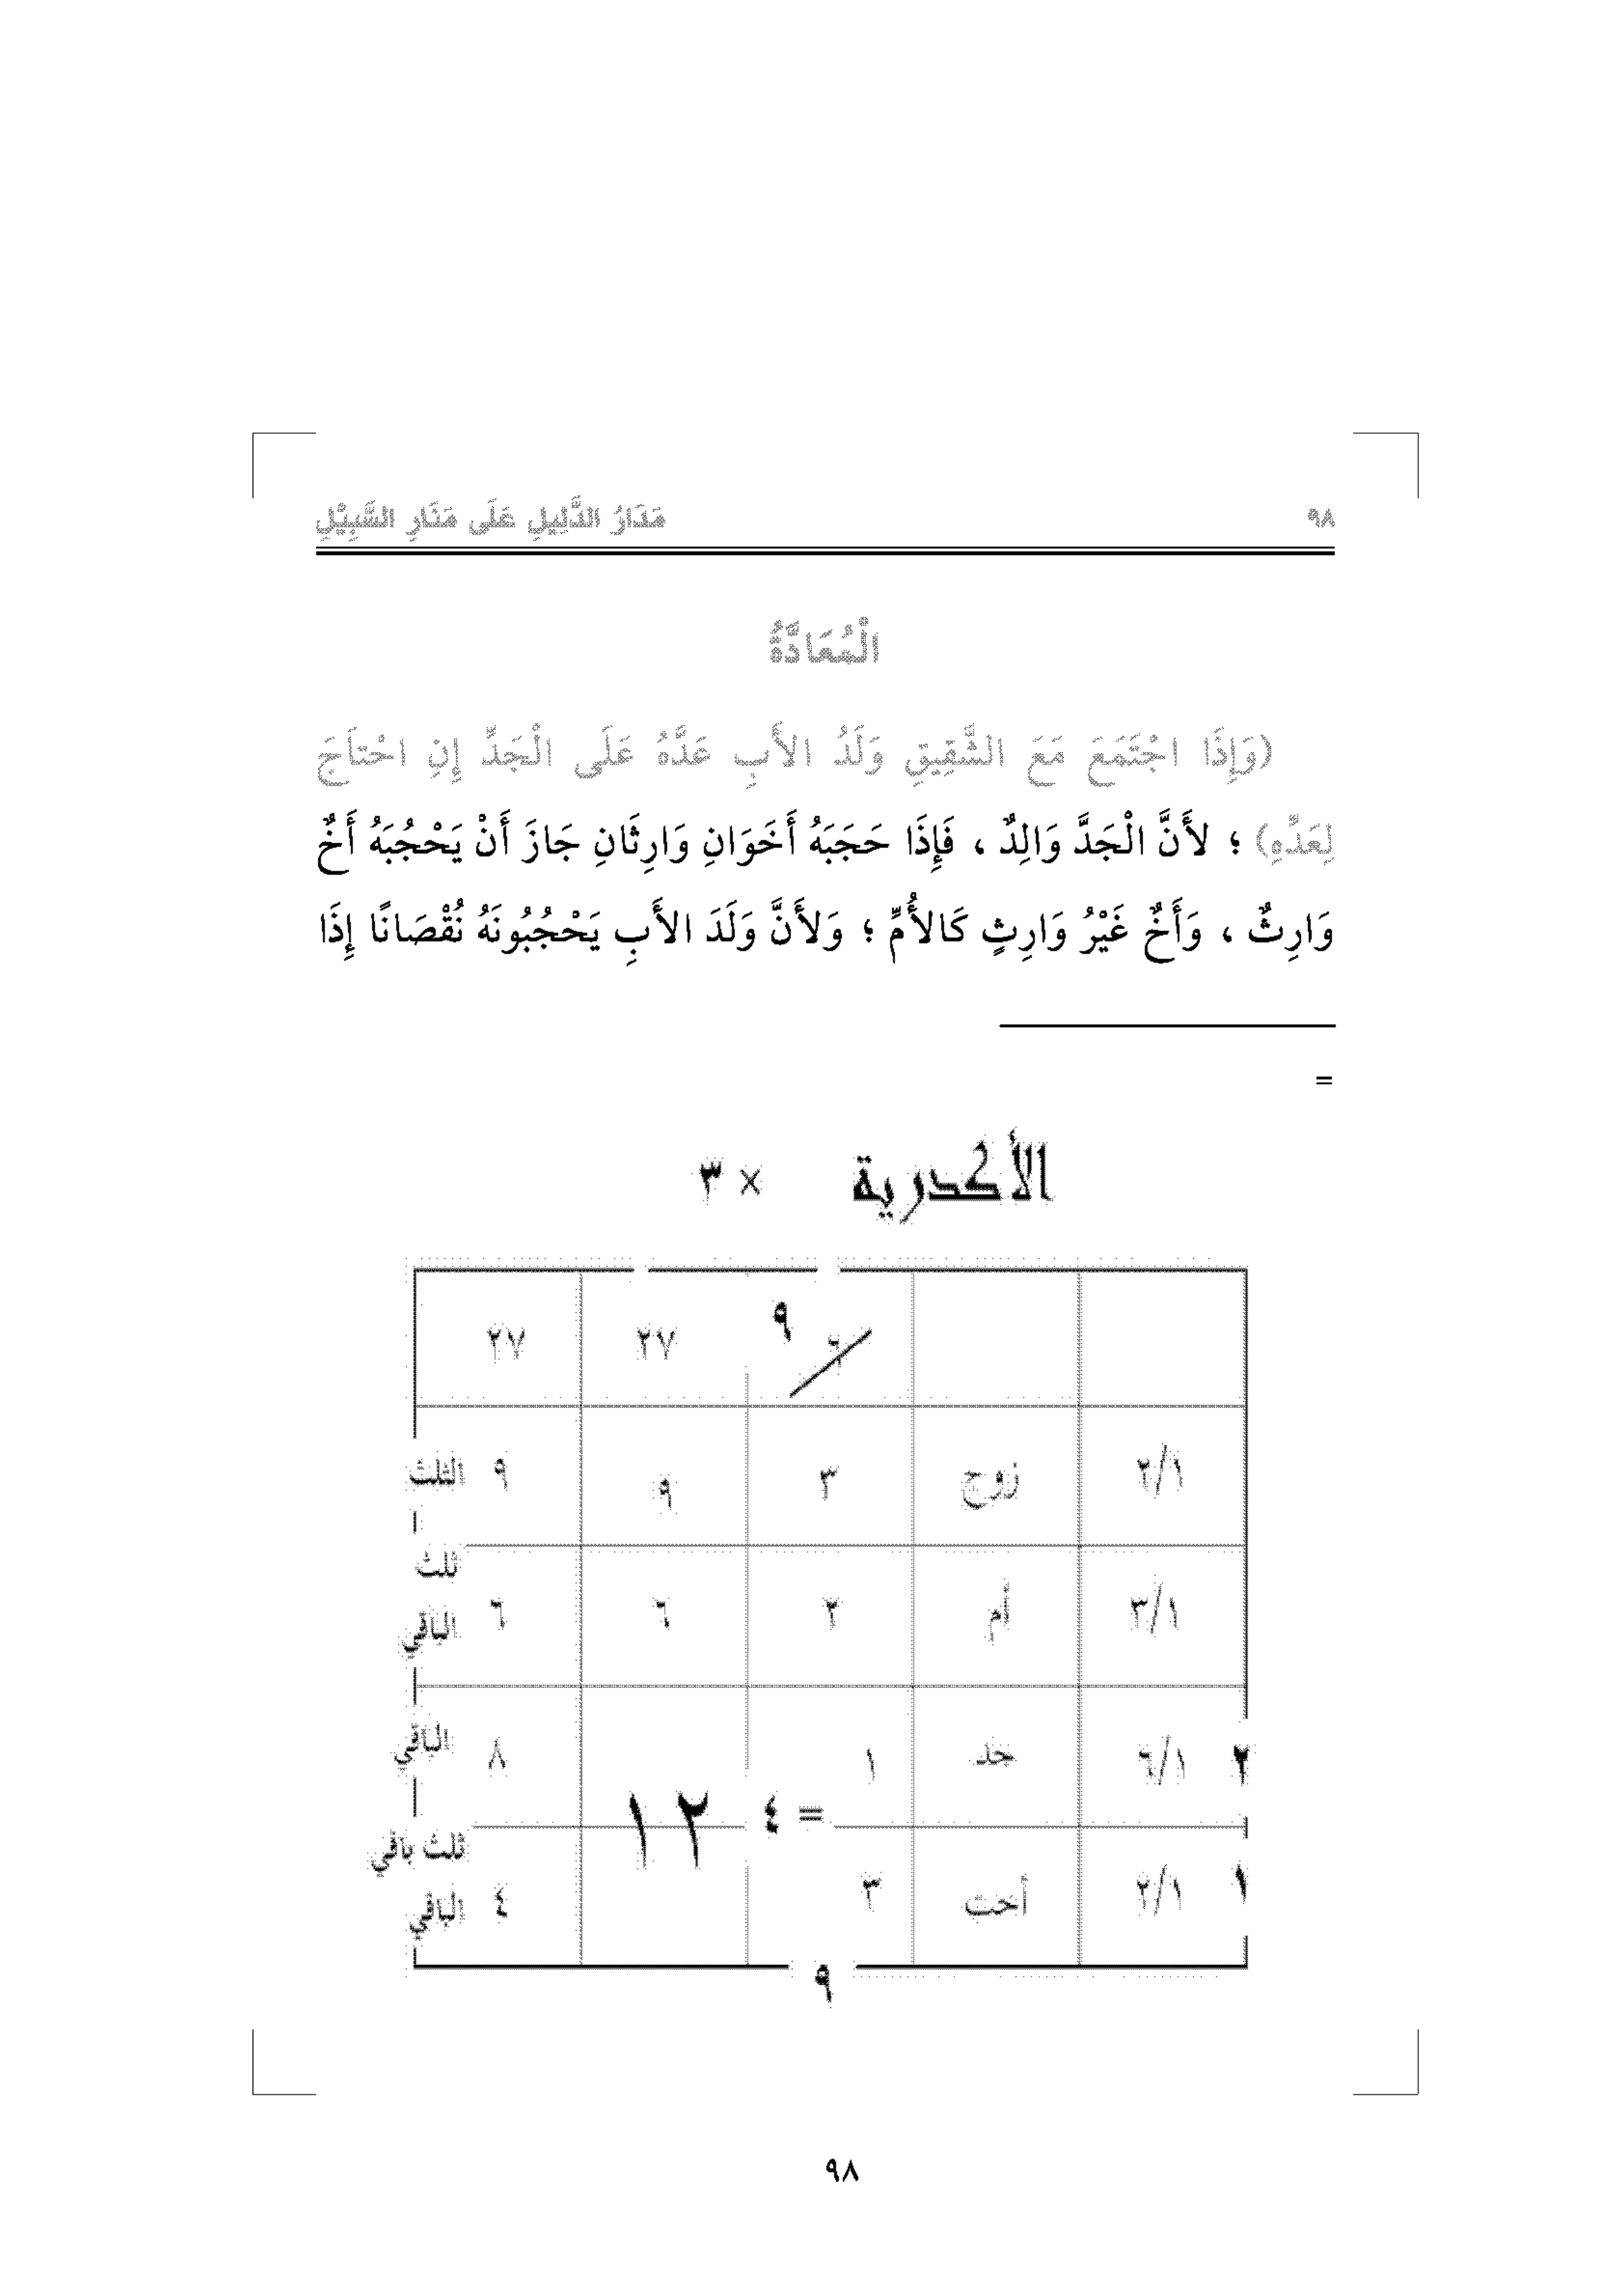 ٩٨ مَدَارُ الدَّلِيلِ عَلَى مَنَارِ السَّبِيْلِ
الْمُعَادَّةُ
(وَإِذَا اجْتَمَعَ مَعَ الشَّقِيقِ وَلَدُ الأَبِ عَدَّهُ عَلَى الْجَدِّ إِنِ احْتاَجَ
لِعَدِّهِ) ؛ لأَنَّ الْجَدَّ وَالِدٌ ، فَإِذَا حَجَبَهُ أَخَوَانِ وَارِثَانِ جَازَ أَنْ يَحْجُبَهُ أَخٌ
وَارِثٌ ، وَأَخٌ غَيْرُ وَارِثٍ كَالأُمِّ ؛ وَلأَنَّ وَلَدَ الأَبِ يَحْجُبُونَهُ نُقْصَانًا إِذَا
=
الأكدرية × ٣
٦ ٩ ٢٧ ٢٧
٢/١ زوج ٣ ٩ ٩ الثلث
٣/١ أم ٢ ٦ ٦ ثلث الباقي
٢ ٦/١ جد ١ ٨ الباقي
= ٤ ١٢
١ ٢/١ أخت ٣ ٤ ثلث باقي الباقي
٩
٩٨